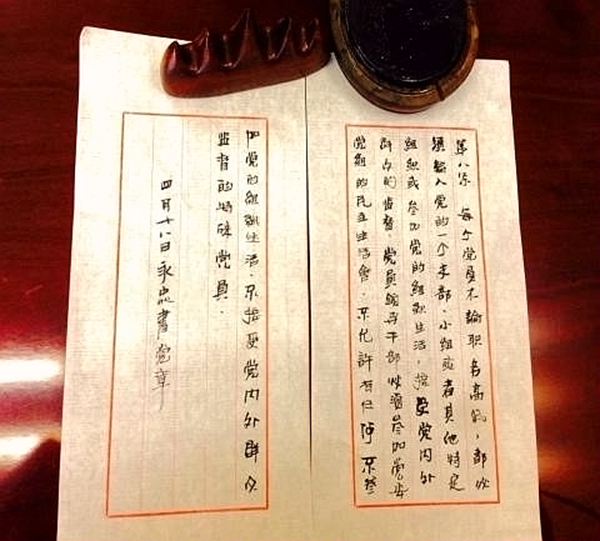 第八条 每个党员不論职务高低，都必
須编入党的一个支部、小组或者其他特定
组织或参加党的组织生活，接受党内外
群众的监督。党员领导干部必須参加党委
党组的民主生活會。不允許有任何不参
加党的组织生活、不接受党内外群众
监督的特殊党员。
四月十八日永忠書党章